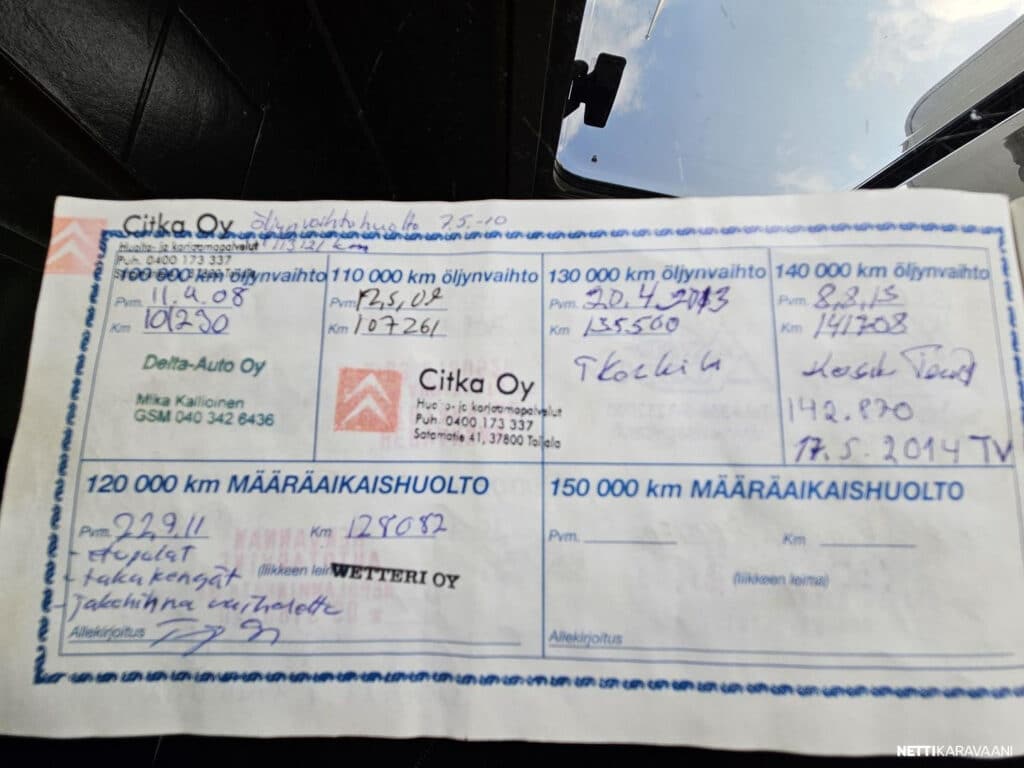 Citka Oy öljynvaihtohuolto 7.5.-10
Huolto- ja korjaamopalvelut 113121 km
Puh. 0400 173 337
100 000 km öljynvaihto
Pvm. 11.4.08
Km 101230
Delta-Auto Oy
Mika Kallioinen
GSM 040 342 6436
110 000 km öljynvaihto
Pvm. 12,5,09
Km 107261
Citka Oy
Huolto- ja korjaamopalvelut
Puh. 0400 173 337
Satamatie 41, 37800 Toijala
130 000 km öljynvaihto
Pvm. 20.4.2013
Km 135500
140 000 km öljynvaihto
Pvm. 8,8,15
Km 141708
142.870
17.5.2014 TV
120 000 km MÄÄRÄAIKAISHUOLTO
Pvm. 22.9.11 Km 128082
- etupalat
- takakengät (liikkeen WETTERI OY
- jakohihna vaihdettu
Allekirjoitus
150 000 km MÄÄRÄAIKAISHUOLTO
Pvm. Km
(liikkeen leima)
Allekirjoitus
NETTIKARAVAANI